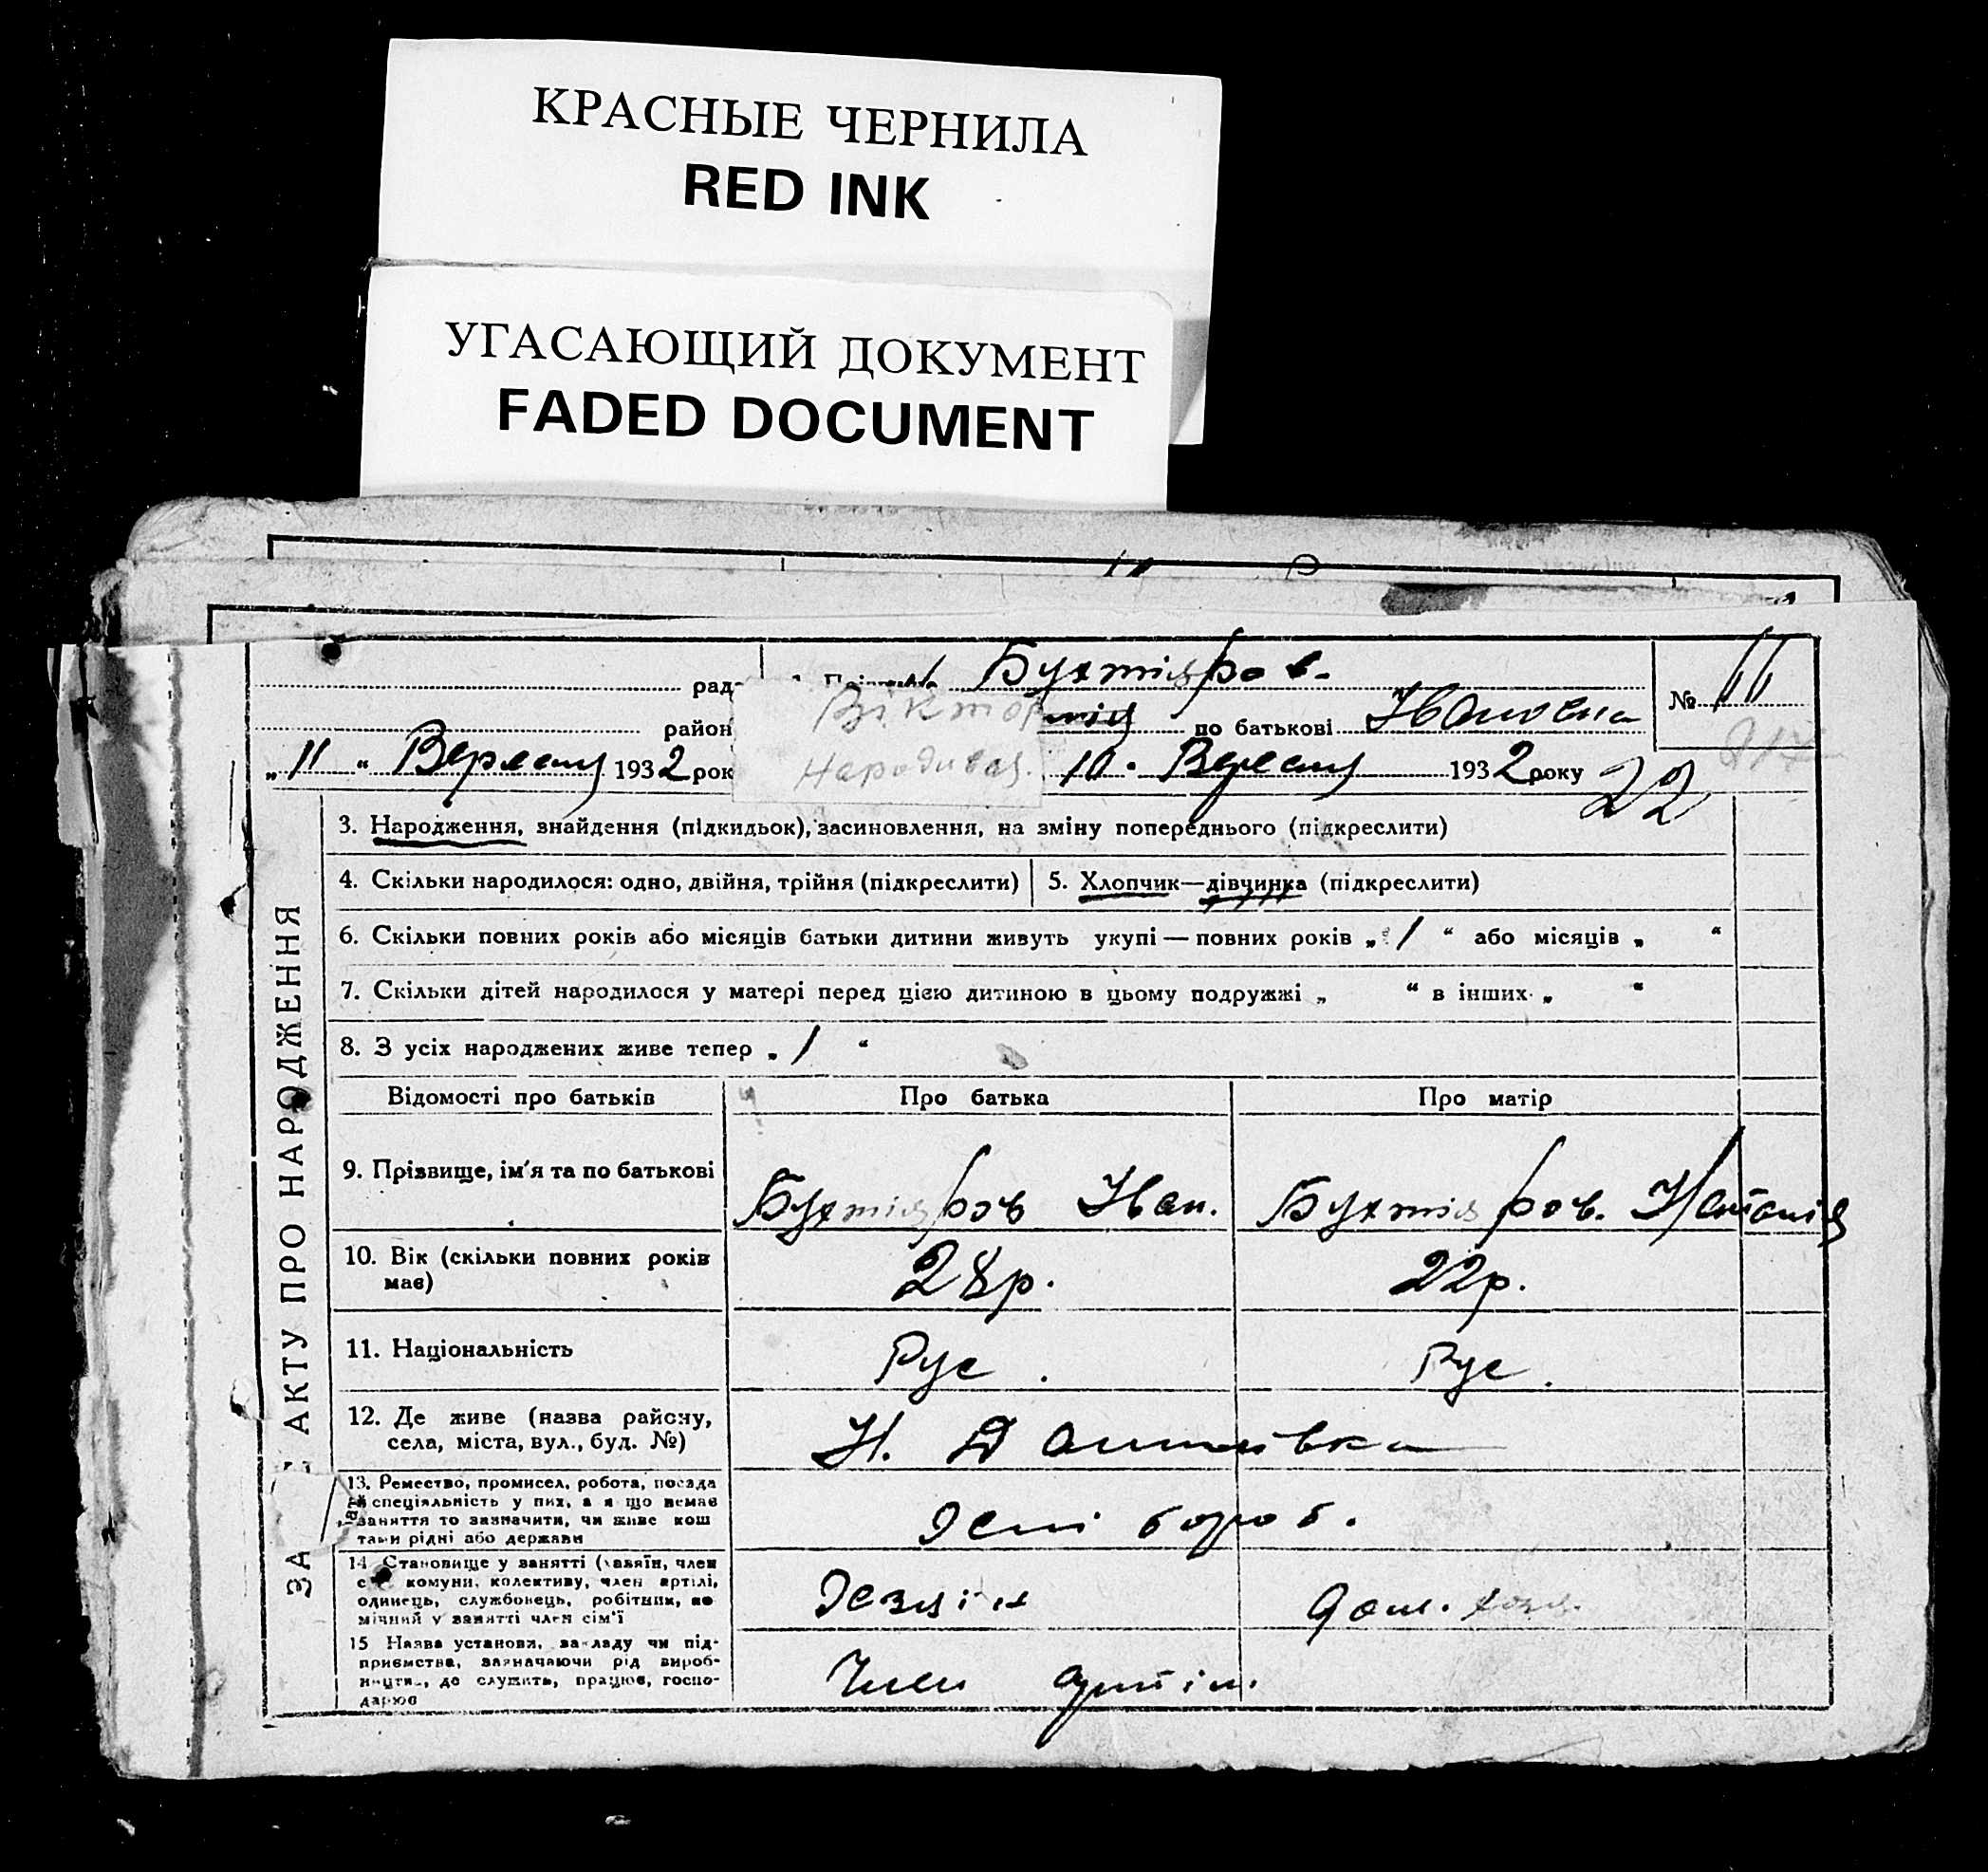 КРАСНЫЕ ЧЕРНИЛА
RED INK
УГАСАЮЩИЙ ДОКУМЕНТ
FADED DOCUMENT
рад Бухтіяров.
№ 11
район Віктор по батькові Ивановна
„11“ Вересня 1932 рок Народився. 10. Вересня 1932 року
22
ЗА АКТУ ПРО НАРОДЖЕННЯ
3. Народження, знайдення (підкидьок), засиновлення, на зміну попереднього (підкреслити)
4. Скільки народилося: одно, двійня, трійня (підкреслити) 5. Хлопчик—дівчинка (підкреслити)
6. Скільки повних років або місяців батьки дитини живуть укупі — повних років „ 1 “ або місяців „ “
7. Скільки дітей народилося у матері перед цією дитиною в цьому подружжі „ “ в інших „ “
8. З усіх народжених живе тепер „ 1 “
Відомості про батьків Про батька Про матір
9. Прізвище, ім'я та по батькові Бухтіяров Иван. Бухтіяров. Наталія
10. Вік (скільки повних років має) 28р. 22р.
11. Національність Рус. Рус.
12. Де живе (назва району, села, міста, вул., буд. №) Н.
13. Ремество, промисел, робота, посада й спеціяльність у них, а якщо немає заняття то зазначити, чи живе кош тами рідні або держави
14 Становище у занятті (хазяїн, член комуни, колективу, член артілі, одинець, службовець, робітник, по мічний у занятті член сім'ї дом. хозя.
15 Назва установи, закладу чи під-
приємства, зазначаючи рід вироб-
ництв, де служить, працює, госпо-
дарює Член артіли.